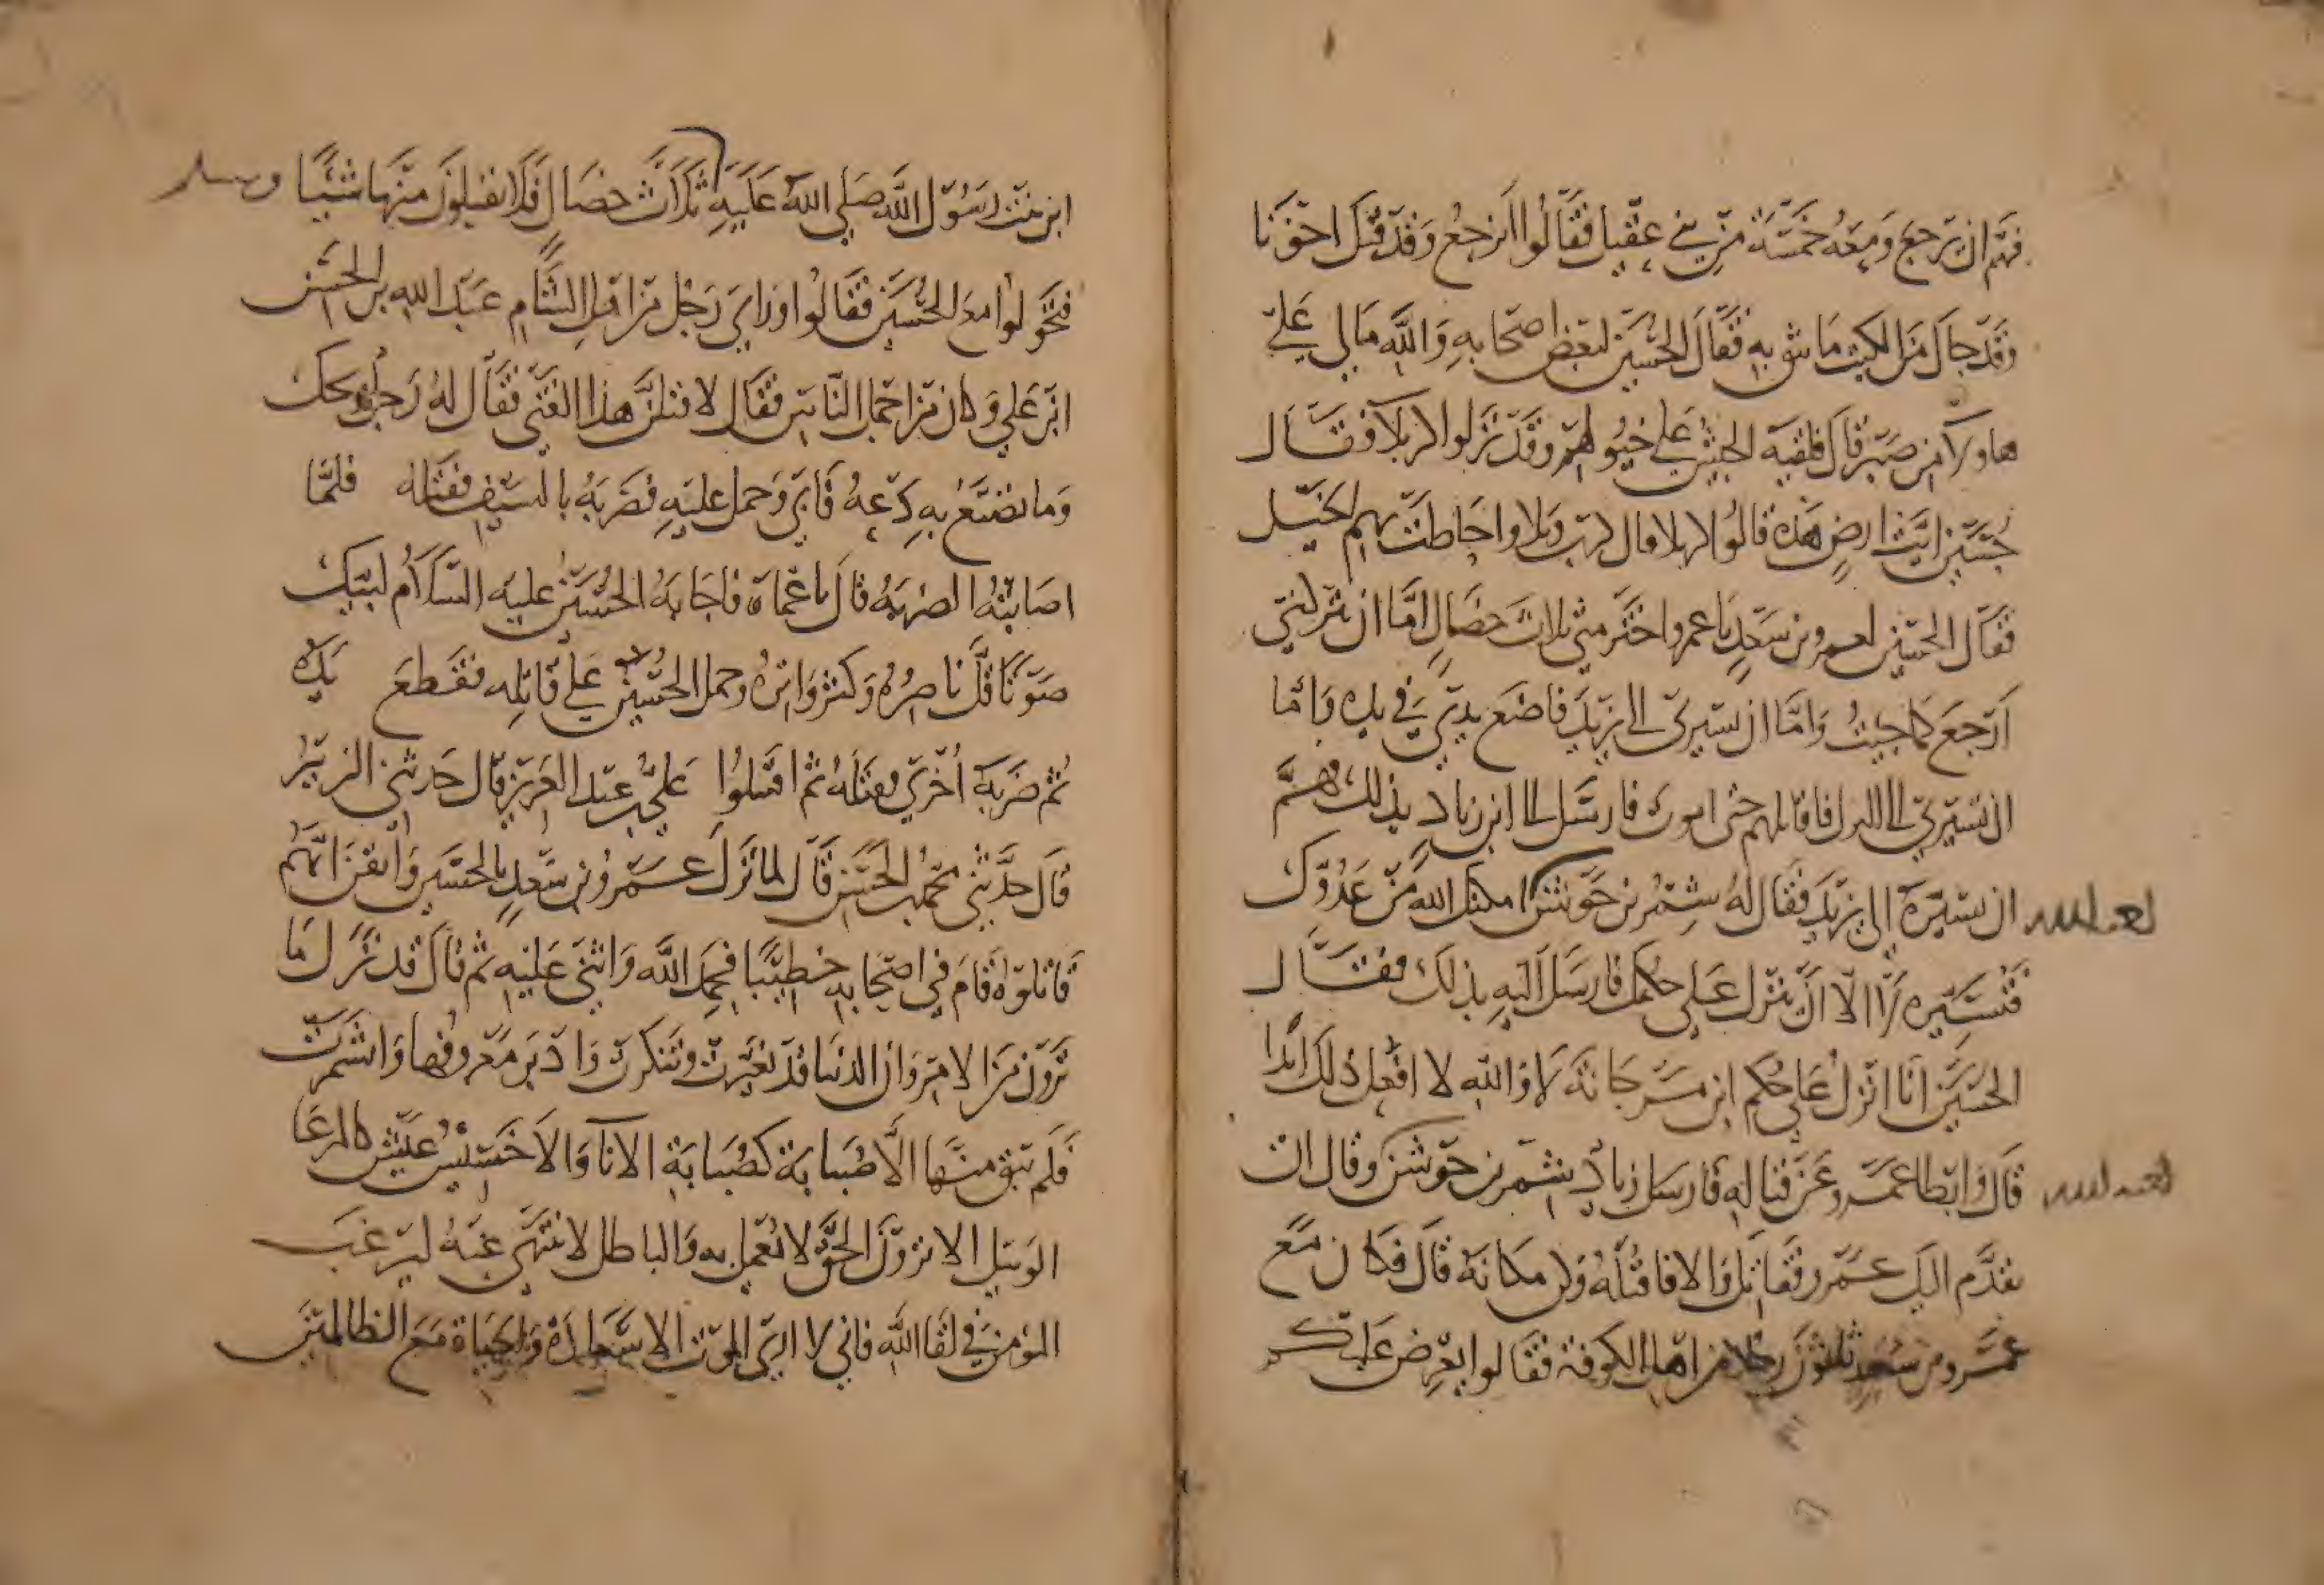 فهم ان يرجع ومعه خمسة من بني عقيل فقالوا انرجع وقد قتل اخونا
وقد جاك من الكتب ما نثق به فقال الحسين لبعض اصحابه والله مالي على
هاولاء من صبر قال فلقيه الجيش على خيولهم وقد نزلوا كربلا فقال
حسين ايت ارض هذه قالوا كربلا قال كرب وبلا واحاطت بهم الخيل
فقال الحسين لعمرو بن سعد يا عمرو اختر مني ثلاث خصال اما ان تتركني
ارجع كما جيت واما ان تسيرني الى يزيد فاضع يدي في يده واما
ان تسيرني الى الترك فاقاتلهم حتى اموت فارسل الى ابن زياد بذلك فهم
ان يسيره الى يزيد فقال له شمر بن حوشن امكنك الله من عدوك
لعنه الله
فتسيره لا الا ان ينزل على حكمك فارسل اليه بذلك فقال
الحسين انا انزل على حكم ابن مرجانة لا والله لا افعل ذلك ابدا
قال وابطا عمرو عن قتاله فارسل زياد شمر بن حوشن وقال ان
لعنه الله
تقدم اليك عمرو فقاتل والا فاقتله وكن مكانه قال فكان مع
عمرو بن سعد ثلثون رجلا من اهل الكوفة فقالوا يعرض عليكم
ابن بنت رسول الله صلى الله عليه ثلاث خصال فلا تقبلون منها شيئا وسلم
فتحولوا مع الحسين فقالوا وراى رجل من اهل الشام عبد الله بن الحسن
ابن علي وكان من اجمل الناس فقال لاقتلن هذا الفتى فقال له رجل ويحك
وما تصنع به دعه فابى وحمل عليه فضربه بالسيف فقتله فلما
اصابته الضربه قال يا عماه فاجابه الحسين عليه السلام لبيك
صوتا قل ناصره وكثر واتره وحمل الحسين على قاتله فقطع يده
ثم ضربه اخرى فقتله ثم اقتتلوا علي بن عبد العزيز قال حدثني الزبير
قال حدثني محمد بن الحسن قال لما نزل عمرو بن سعد بالحسين وايقن انهم
قاتلوه قام في اصحابه خطيبا فحمد الله واثنى عليه ثم قال قد نزل ما
ترون من الامر وان الدنيا قد تغيرت وتنكرت وادبر معروفها وانشمرت
فلم تبق منها الا صبابة كصبابة الانا والا خسيس عيش كالمرعا
الوبيل الا ترون الحق لا يعمل به والباطل لا ينتهى عنه ليرغب
المؤمن في لقا الله فاني لا ارى الموت الا سعادة والحياة مع الظالمين